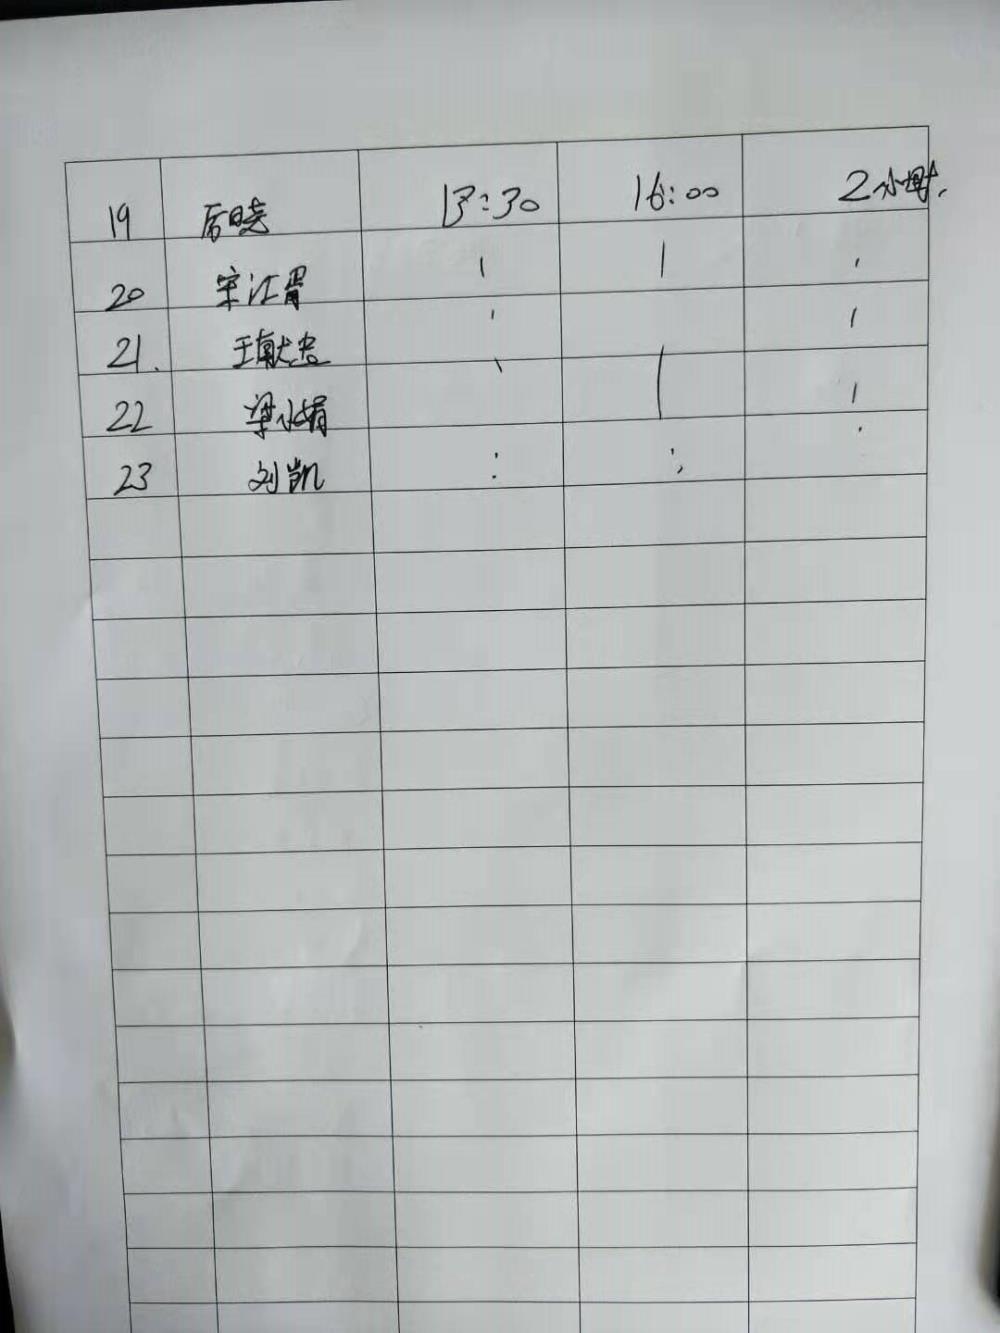 19 厉晓 13:30 16:00 2小时.
20 宋江胃 | | '
21. 王献忠 ' |
22 梁小娟 \ | |
23 刘凯 : : .